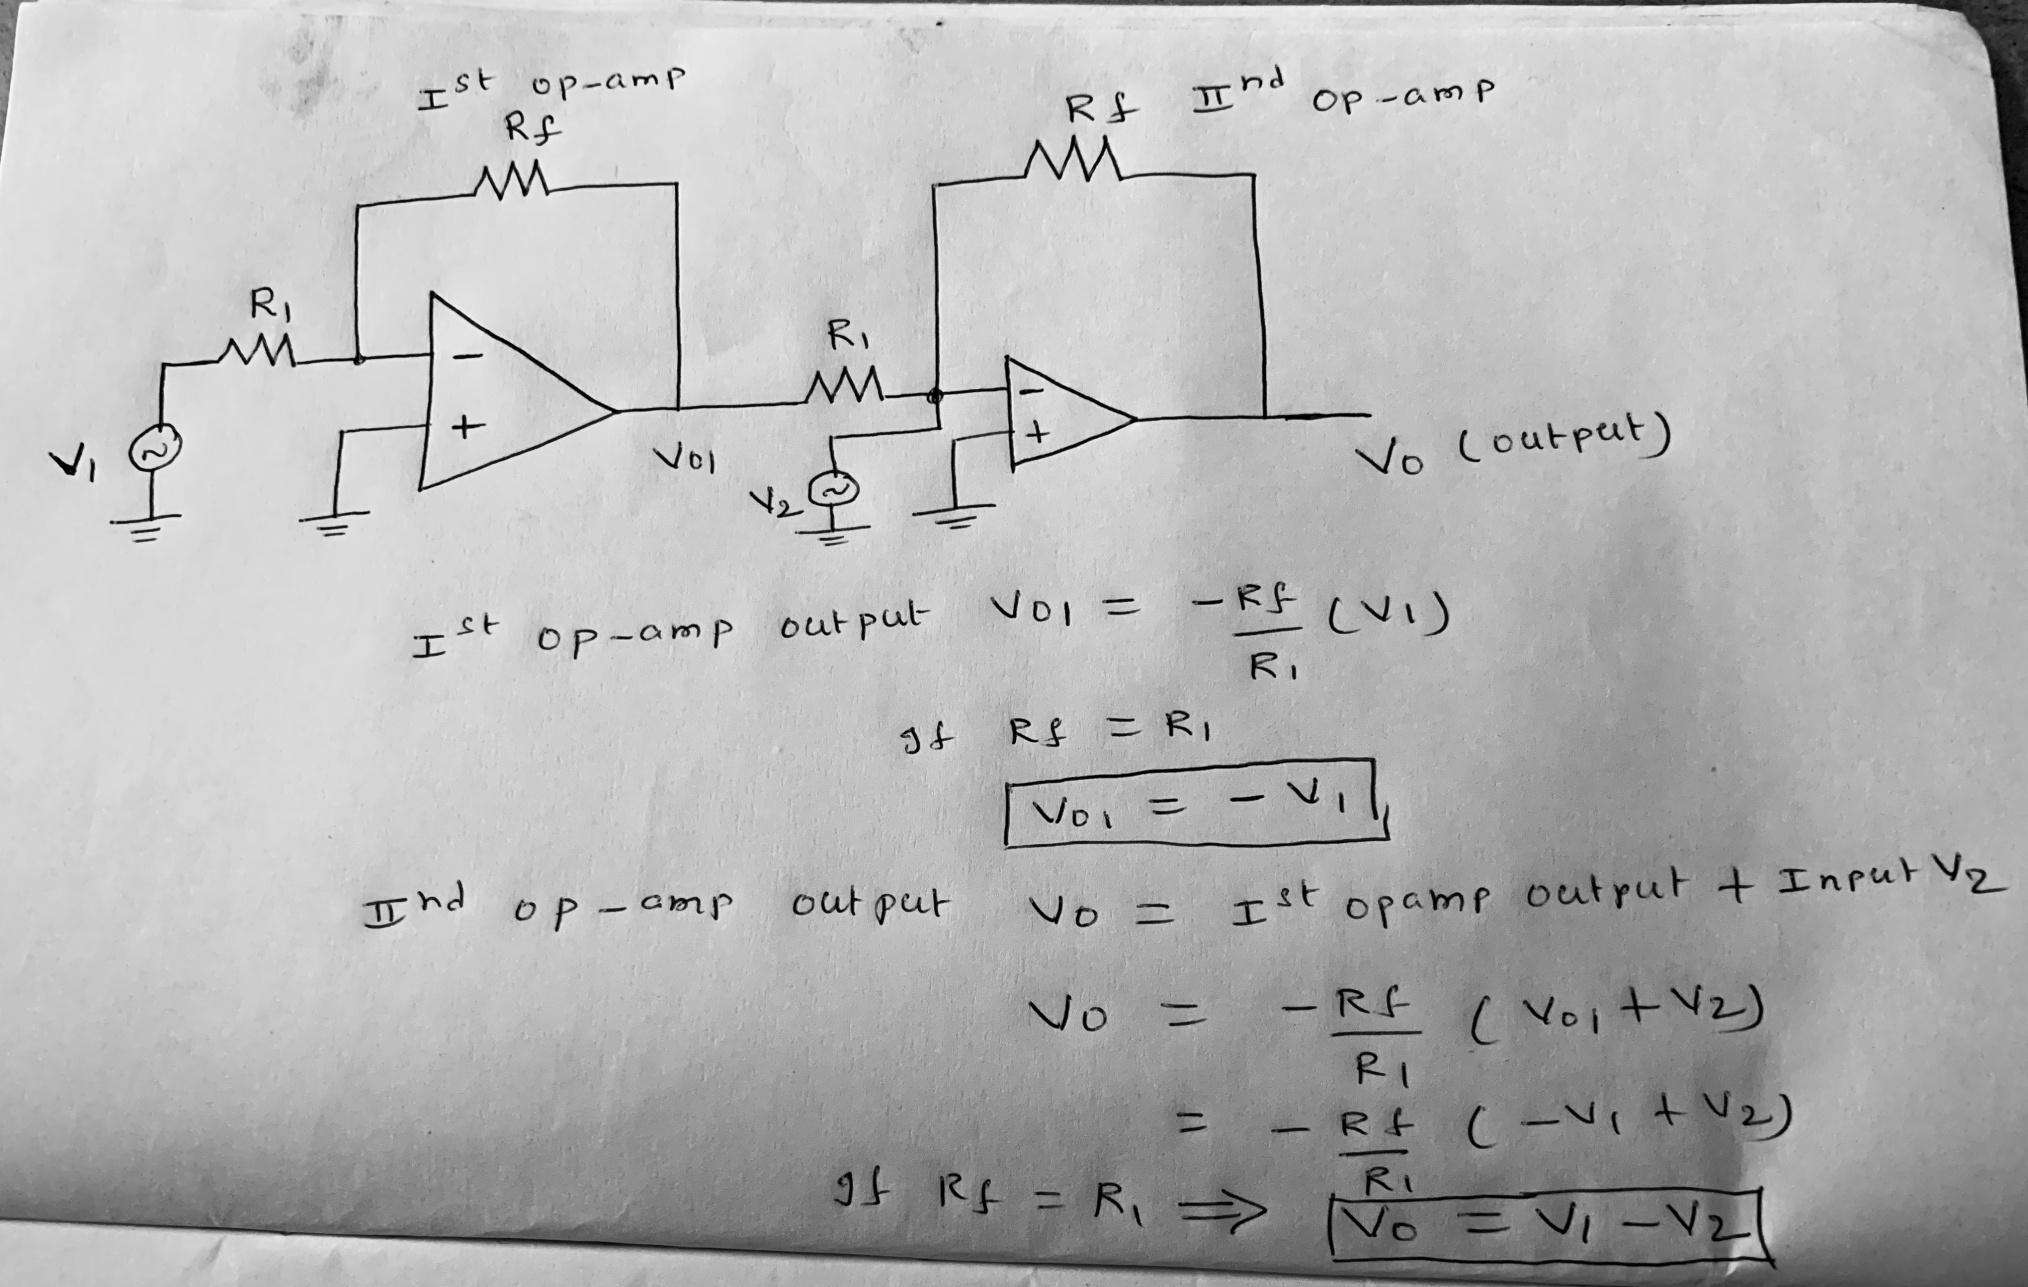 Ist op-amp
Rf
Rf IInd op-amp
R1
R1
−
+
−
+
V1
V01
V2
V0 (output)
Ist op-amp output V01 = -Rf/R1 (V1)
If Rf = R1
V01 = - V1
IInd op-amp output V0 = Ist opamp output + Input V2
V0 = -Rf/R1 (V01 + V2)
= -Rf/R1 (-V1 + V2)
If Rf = R1 ⇒ V0 = V1 - V2